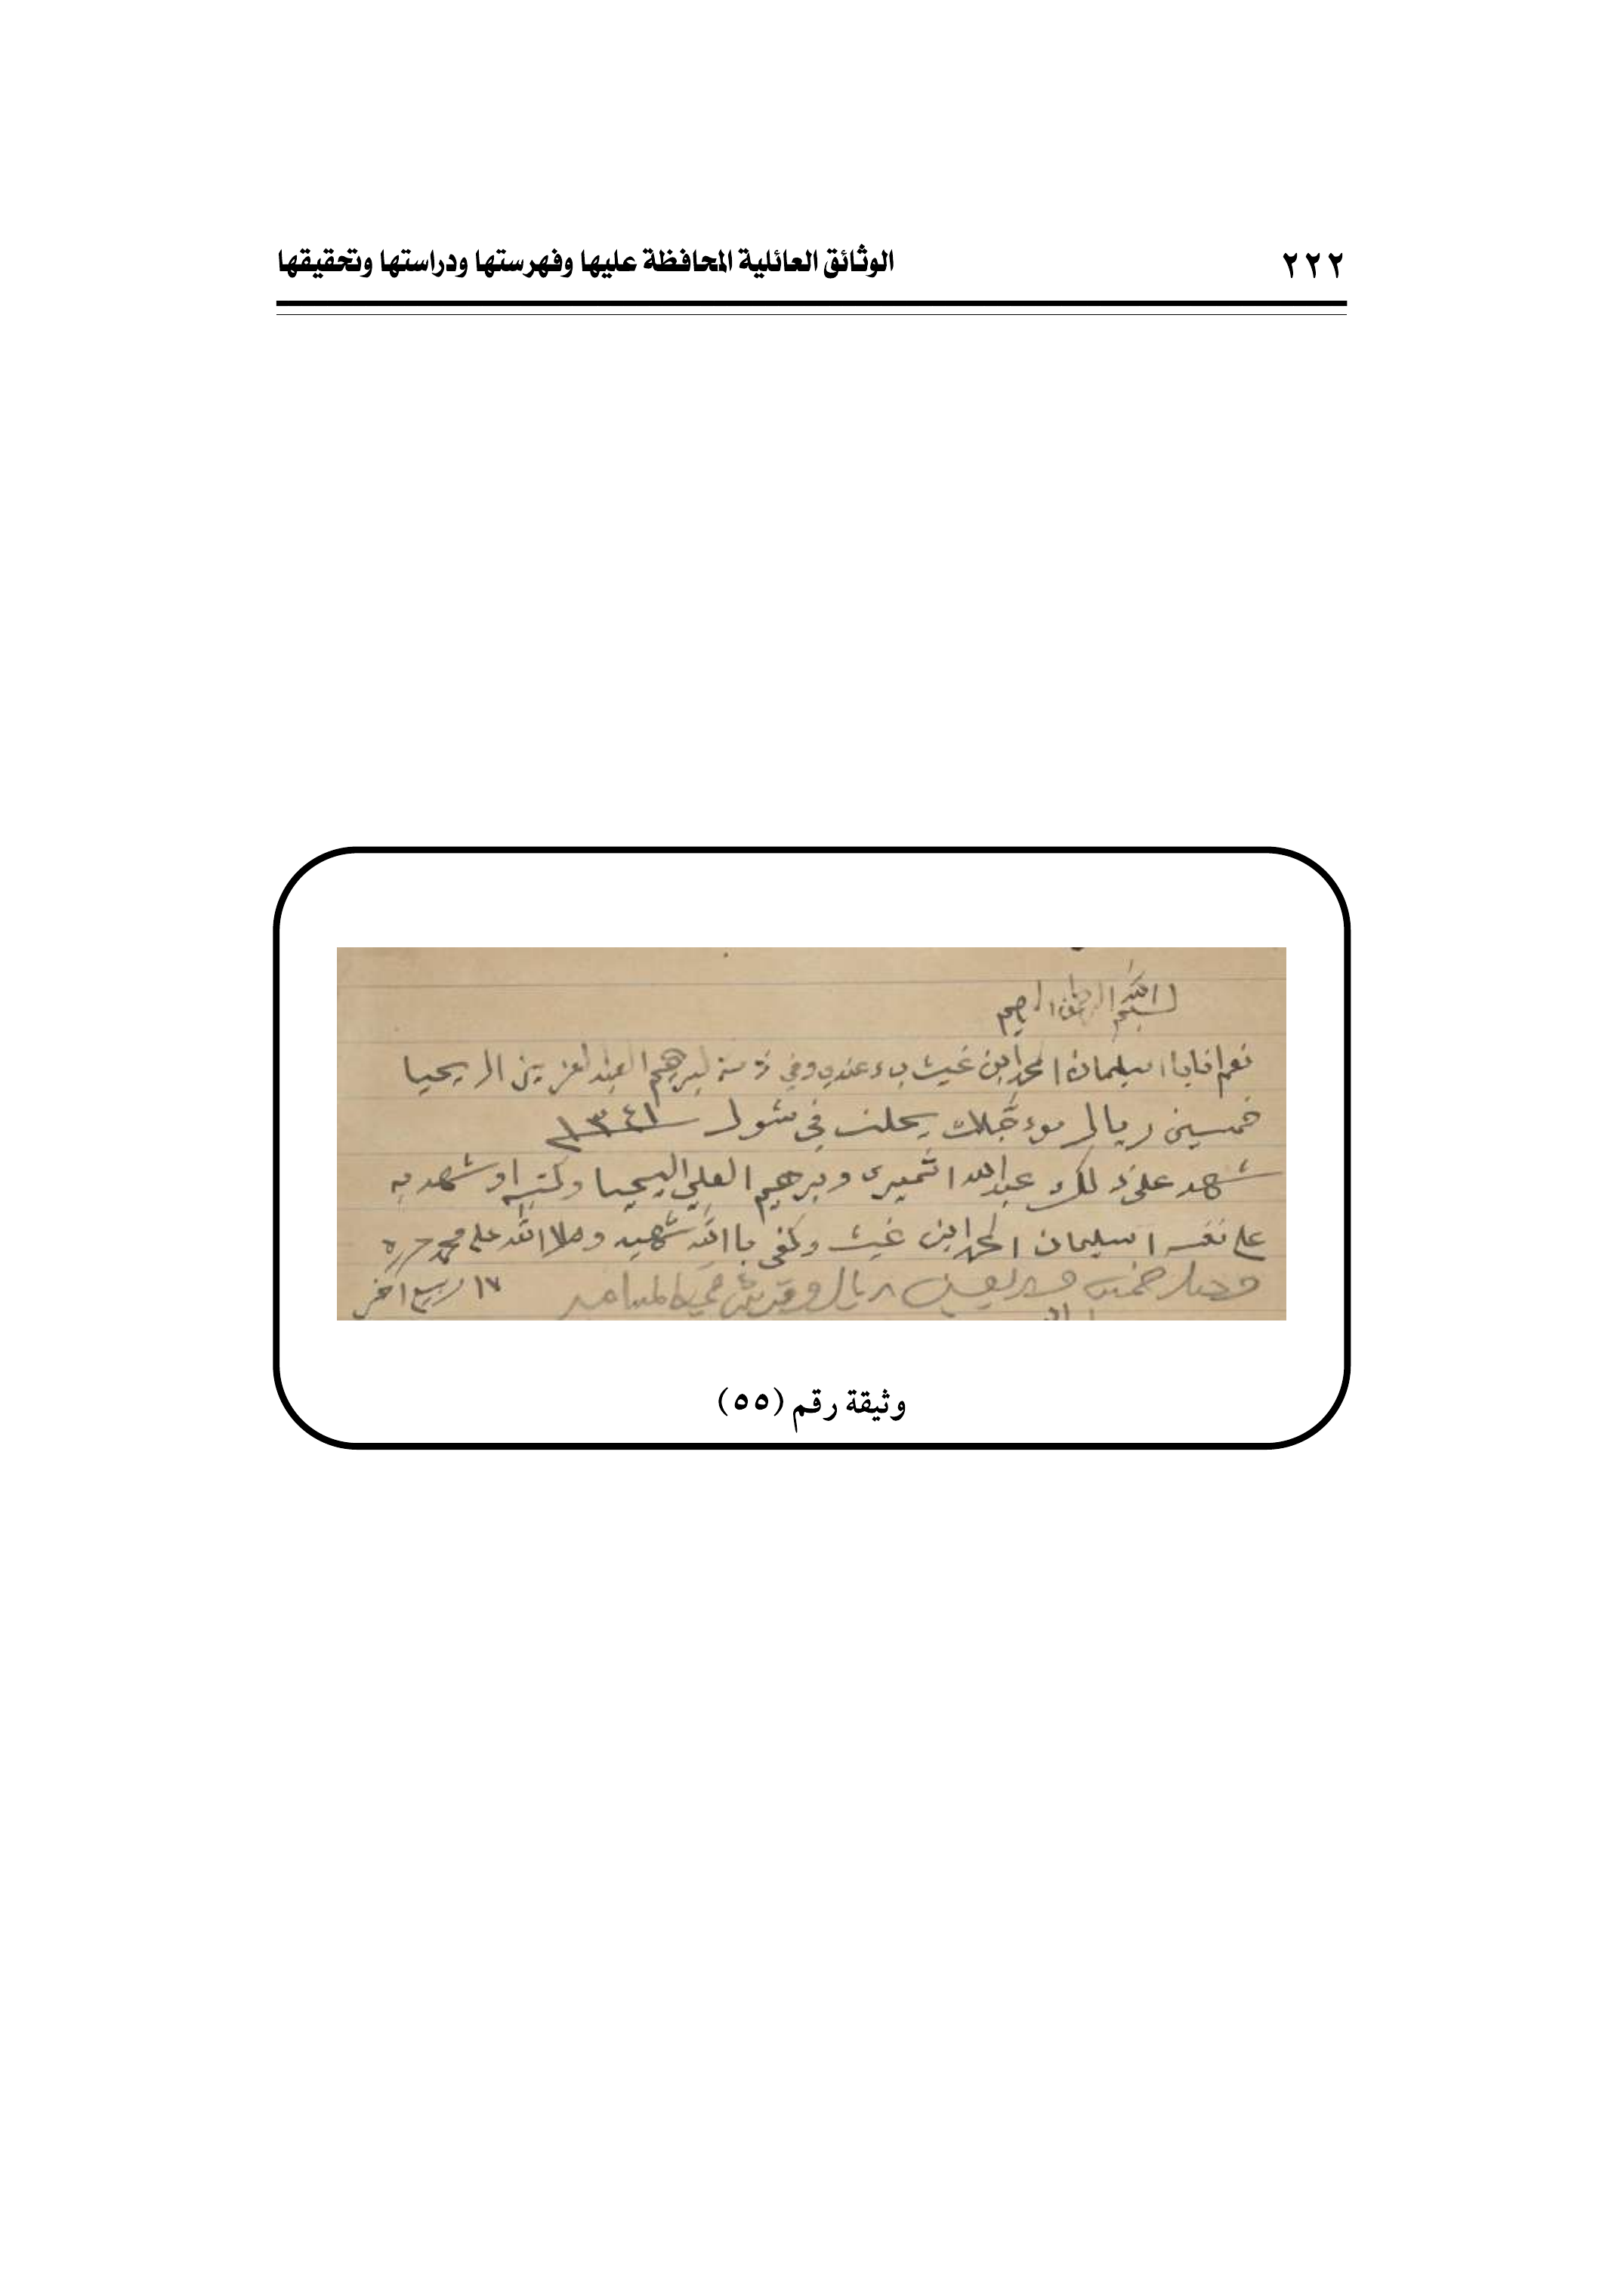 ٢٢٢ الوثائق العائلية المحافظة عليها وفهرستها ودراستها وتحقيقها
بسم الله الرحمن الرحيم
نعم انا يا اسليمان المحمد ابن غيث بـاء عندي وفي ذمة لبرهيم العبد لعزيز الـ يحيا
خمسين ريال موءجلات يحلن في شول ١٣٤١
شهد على ذلك عبدالله اثميري وبرهيم العلي اليحيا وكتبه او شهد به
على نفسه اسليمان المحمد ابن غيث وكفى با الله شهيد وصلا الله على محمد
وصل خمسه وربعين ريال وقرش
١٧ ربيع اخر
وثيقة رقم (٥٥)